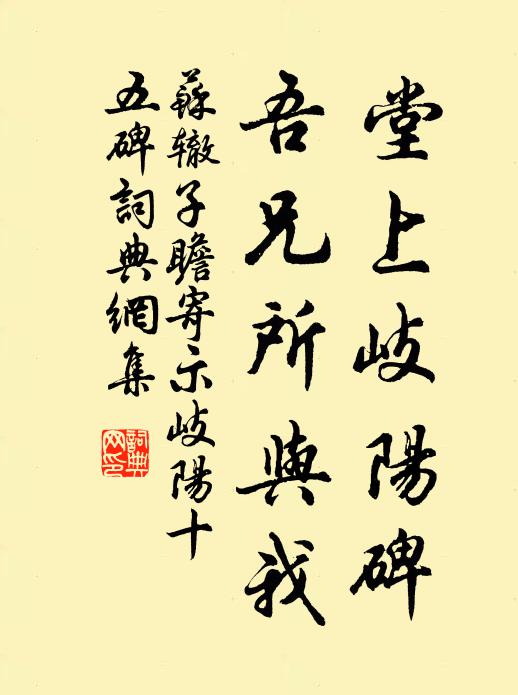 堂上岐陽碑
吾兄所與我
蘇辙子瞻寄示岐陽十
五碑詞典網集
詞典網印